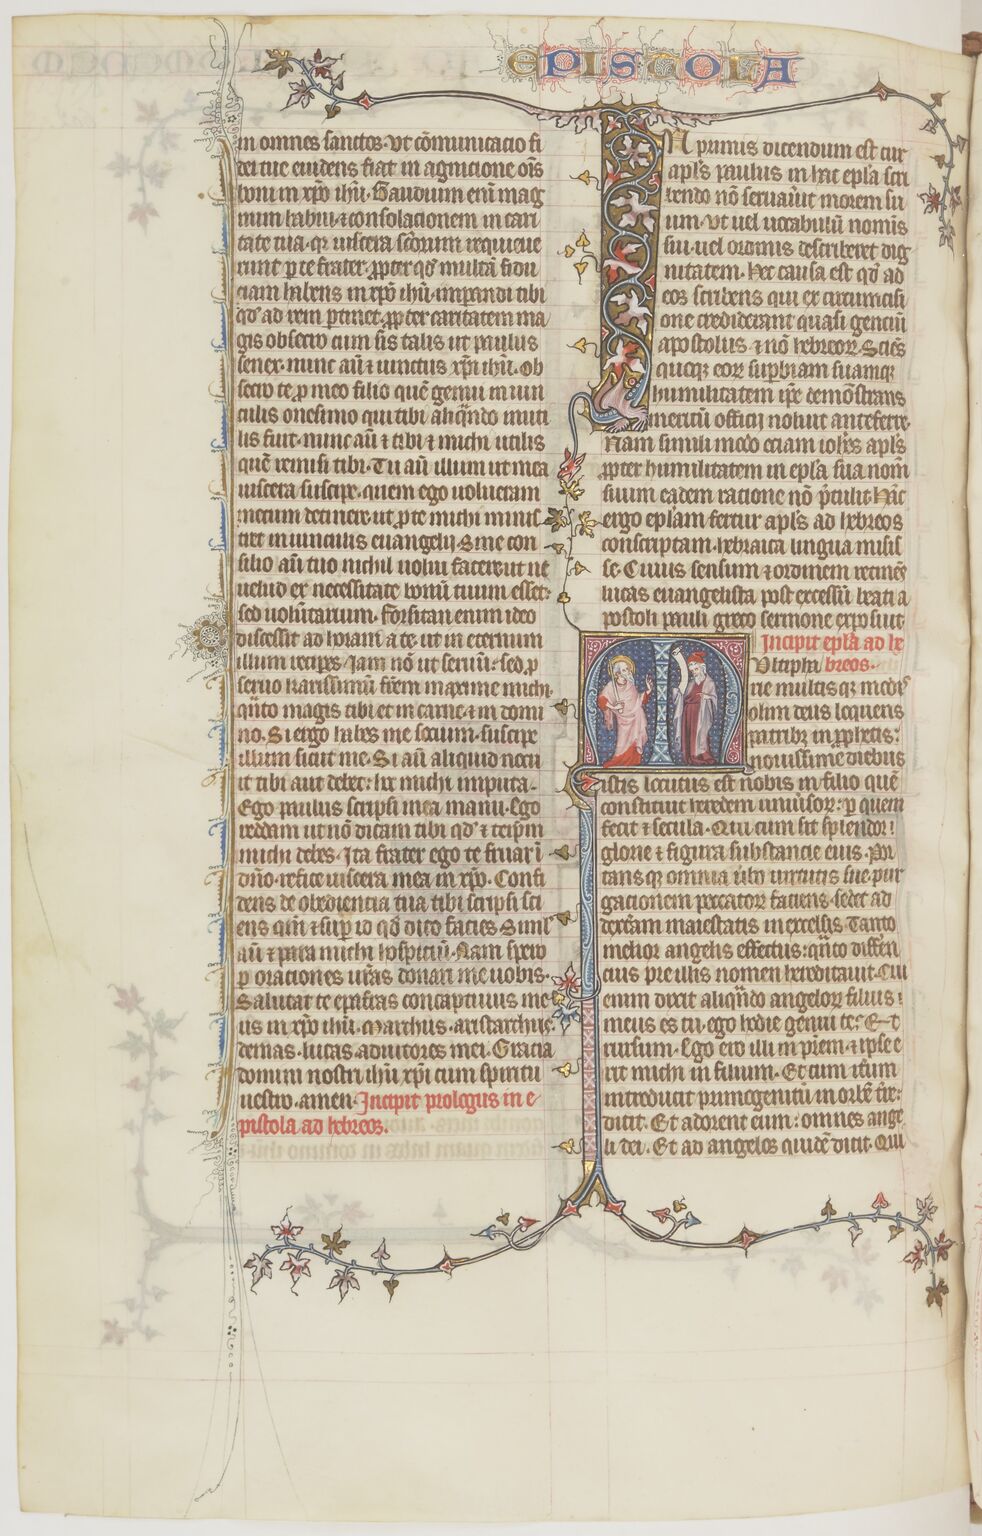 EPISTOLA
in omnes sanctos. Vt cōmunicacio fi
dei tue euidens fiat in agnicione oīs
boni in xp̄o ihū. Gaudium enī mag
num habui ⁊ consolacionem in cari
tate tua. qr uiscera scōrum requieue
runt p te frater. ꝓpter qd' multā fidu
ciam habens in xp̄o ihū. impandi tibi
qd' ad rem ptinet. ꝓpter caritatem ma
gis obsecro cum sis talis ut paulus
senex. nunc aū ⁊ uinctus xp̄i ihū. Ob
secro te p meo filio quē genui in uin
culis onesimo qui tibi aliqn̄do inuti
lis fuit. nunc aū ⁊ tibi ⁊ michi utilis
quē remisi tibi. Tu aū illum ut mea
uiscera suscipe. quem ego uolueram
mecum detinere. ut ꝓ te michi minis
tret in uinculis euangelij. Sine con
silio aū tuo nichil uolui facere. ut ne
uelud ex necessitate bonū tuum esset.
sed uolūtarium. Forsitan enim ideo
discessit ad horam a te. ut in eternum
illum recipes. Iam nō ut seruū. sed ꝓ
seruo karissimū frēm maxime michi.
qn̄to magis tibi et in carne ⁊ in domi
no. Si ergo habes me socium. suscipe
illum sicut me. Si aū aliquid nocu
it tibi aut debet. hec michi imputa.
Ego paulus scripsi mea manu. Ego
reddam ut nō dicam tibi qd' ⁊ teipm̄
michi debes. Ita frater ego te fruar ī
dn̄o. refice uiscera mea in xp̄o. Confi
dens de obediencia tua tibi scripsi sci
ens qm̄ ⁊ sup id qd̄ dico facies. Simī
aū ⁊ para michi hospiciū. Nam spero
p oraciones ur̄as donari me uobis.
Salutat te epafras concaptiuus me
us in xp̄o ihū. Marchus. aristarchus.
demas. lucas. adiutores mei. Gracia
domini nostri ihū xp̄i cum spiritu
uestro. amen. Incipit prologus in e
pistola ad hebreos.
IN primis dicendum est cur
apl̄s paulus in hac epl̄a scri
bendo nō seruau̅it morem su
um. Vt uel uocabulū nomīs
sui. uel ordinis describeret dig
nitatem. Hec causa est qd̄ ad
eos scribens qui ex circumcisi
one crediderant quasi genciū
apostolus ⁊ nō hebreoꝝ. Sciēs
quoqꝫ eoꝝ supbiam suamqꝫ
humilitatem ipe demōstrans
meritū officij noluit anteferre.
Nam simili modo eciam ioh̄es apl̄s
ꝓpter humilitatem in epl̄a sua nom̄
suum eadem racione nō p̄tulit. Hāc
ergo epl̄am fertur apl̄s ad hebreos
conscriptam. hebraica lingua misis
se. Cuius sensum ⁊ ordinem retinēs
lucas euangelista post excessū beati a
postoli pauli greco sermone exposuit.
Incipit epl̄a ad he
breos.
Vltipha
rie multisqꝫ modis
olim deus loquens
patribꝫ in ꝓphetis:
nouissime diebus
istis locutus est nobis in filio quē
constituit heredem uniu̅soꝝ: p quem
fecit ⁊ secula. Qui cum sit splendor
glorie ⁊ figura substancie eius. Por
tansqꝫ omnia u̅bo uirtutis sue. pur
gacionem peccatoꝝ faciens. sedet ad
dexteram maiestatis in excelsis. Tanto
melior angelis effectus: qn̄to differen
cius pre illis nomen hereditauit. Cui
enim dixit aliqn̄do angeloꝝ filius
meus es tu. ego hodie genui te: Et
rursum. Ego ero illi in pr̄em. ⁊ ipse e
rit michi in filium. Et cum itūm
introducit primogenitū in orbē tr̄e:
dicit. Et adorent eum: omnes ange
li dei. Et ad angelos quidē dicit. Qui